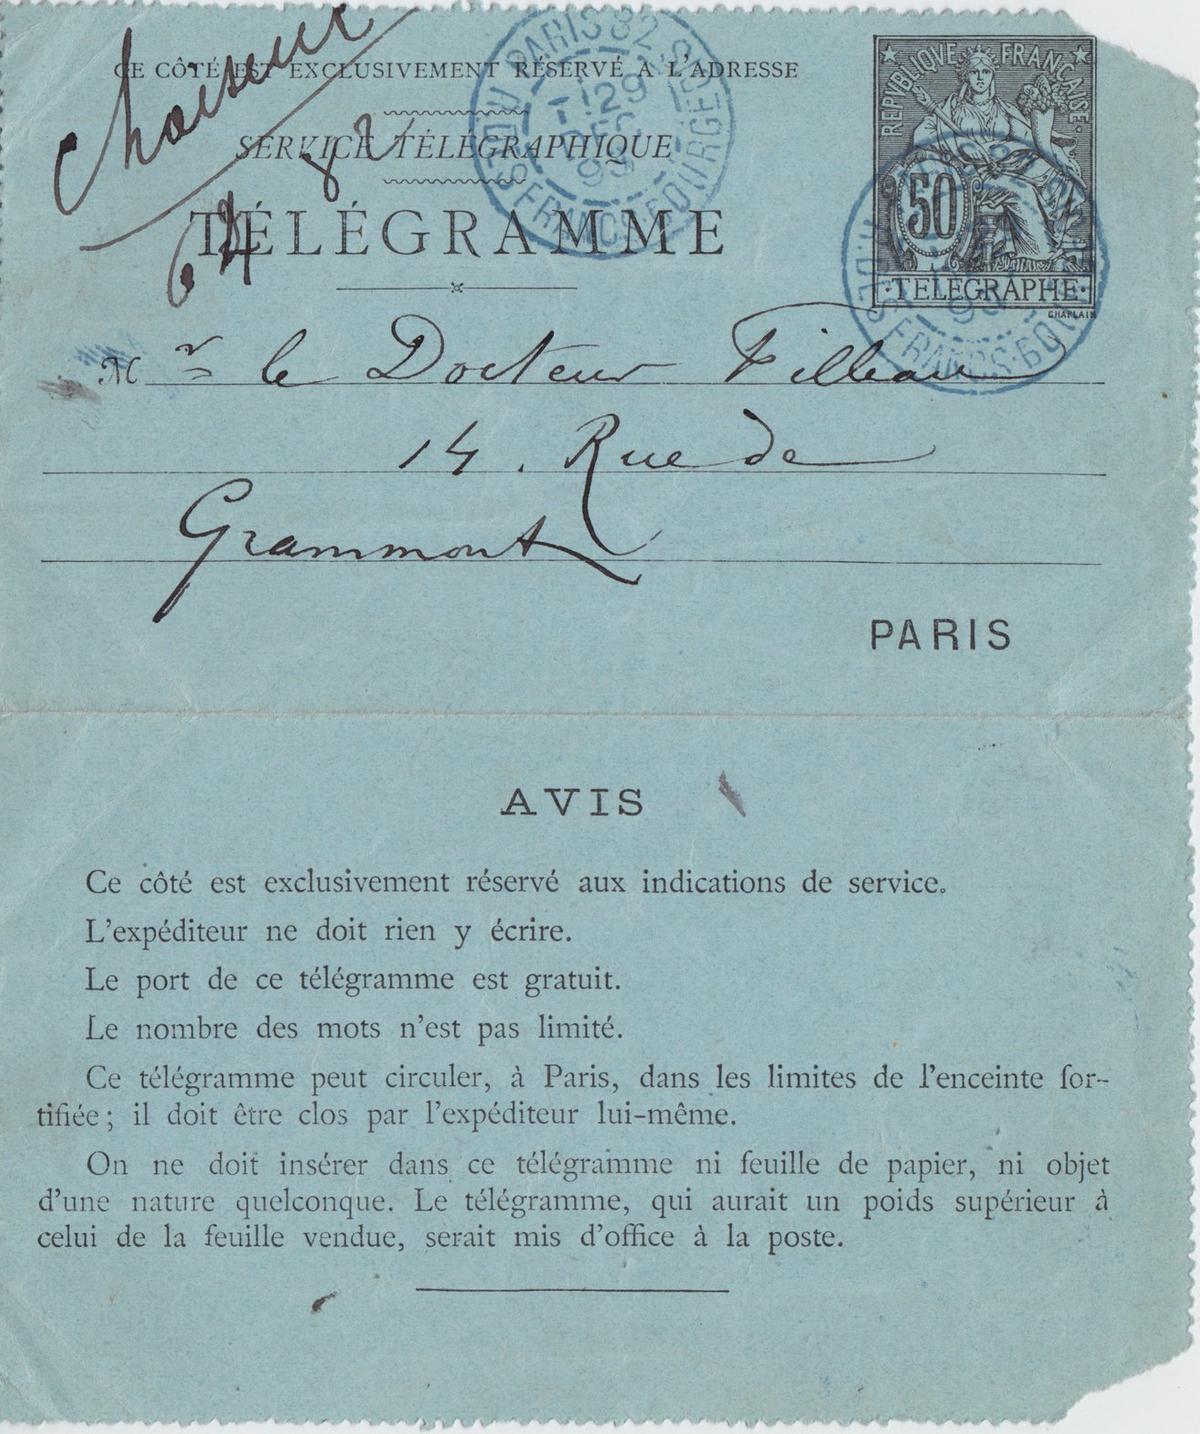 Choiseul
CE CÔTÉ EST EXCLUSIVEMENT RÉSERVÉ A L'ADRESSE
SERVICE TÉLÉGRAPHIQUE
82
64
TÉLÉGRAMME
PARIS 82
29
DEC
99
Sᵗ FRANCS-BOURGEOIS
REPVBLIQVE FRANÇAISE
50
·TELEGRAPHE·
CHAPLAIN
Mr le Docteur Filleau
14. Rue de
Grammont
PARIS
AVIS
Ce côté est exclusivement réservé aux indications de service.
L'expéditeur ne doit rien y écrire.
Le port de ce télégramme est gratuit.
Le nombre des mots n'est pas limité.
Ce télégramme peut circuler, à Paris, dans les limites de l'enceinte for-
tifiée; il doit être clos par l'expéditeur lui-même.
On ne doit insérer dans ce télégramme ni feuille de papier, ni objet
d'une nature quelconque. Le télégramme, qui aurait un poids supérieur à
celui de la feuille vendue, serait mis d'office à la poste.